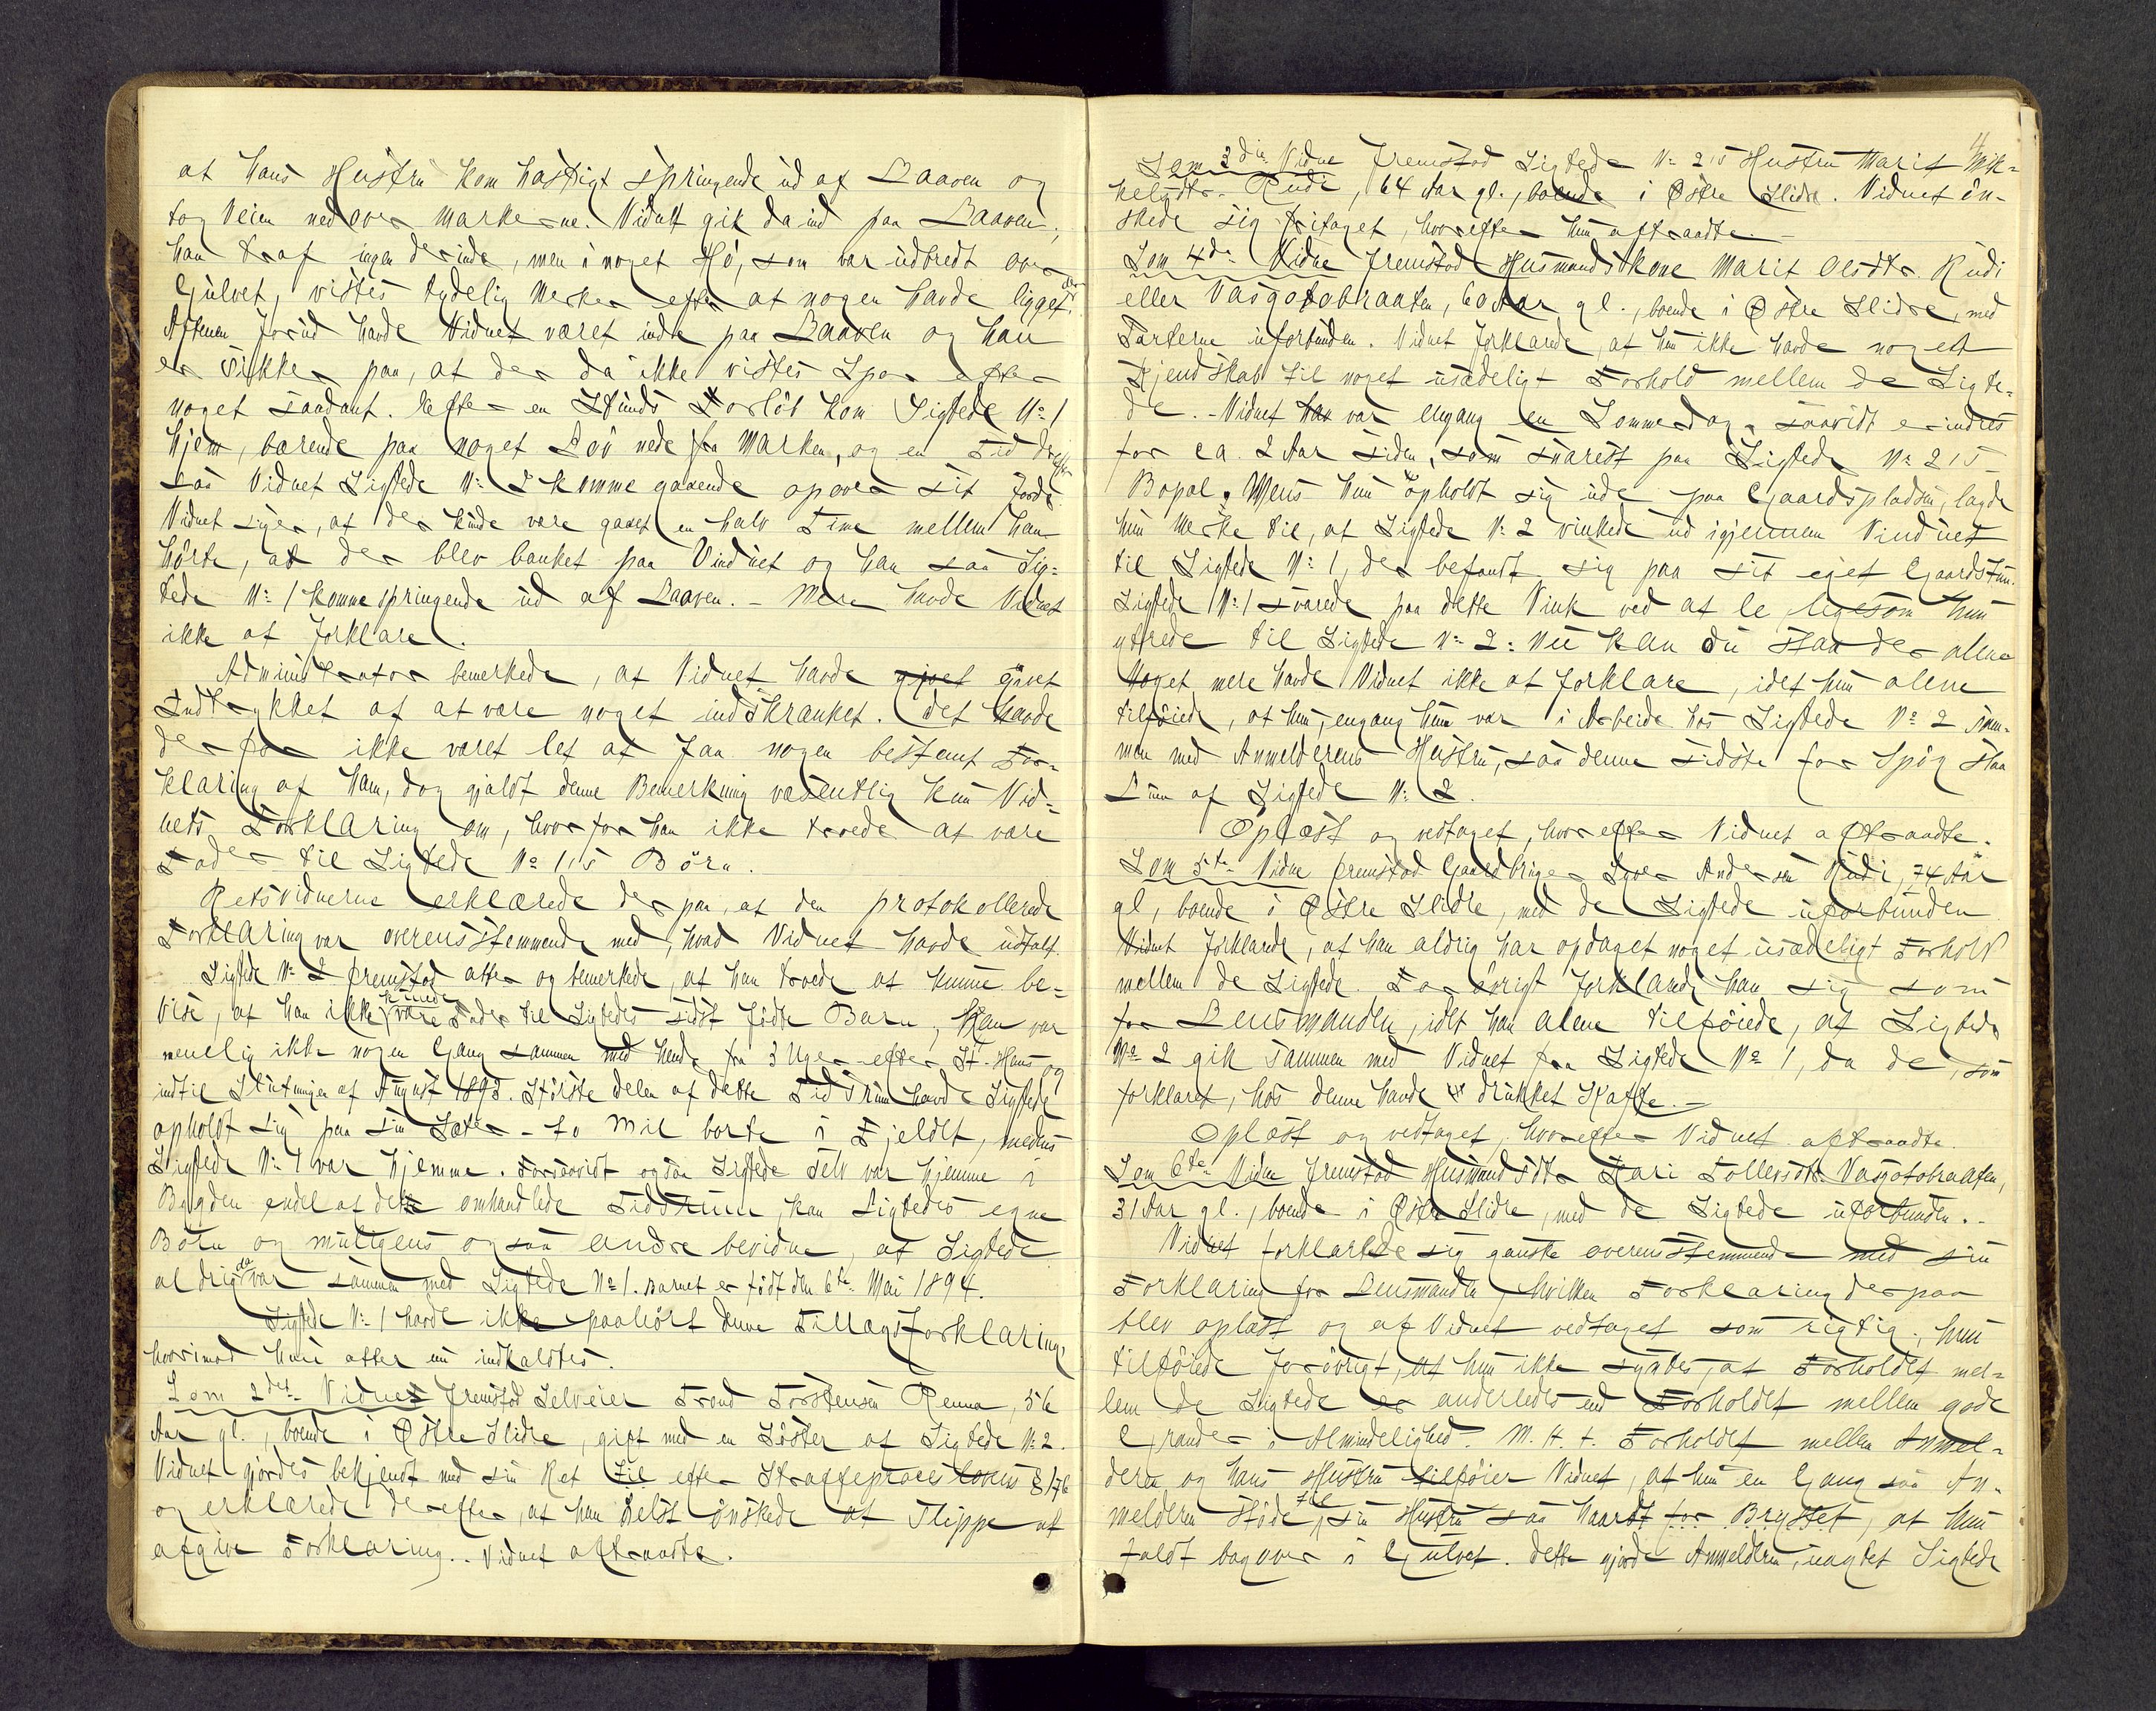 at hans Hustru kom hastigt springende ud af Laaven og
tog Veien nedover Markerne. Vidnet gik da ind paa Laaven;
han traf ingen derinde, men i noget Hø, som var udbredt over
Gulvet, vistes tydelig Merker efter at nogen havde ligget der.
Aftenen forud havde Vidnet været inde paa Laaven og han
er sikker paa, at der da ikke vistes Spor efter
noget saadant. Efter en Stunds Forløb kom Sigtede No 1
hjem, bærende paa noget Løv nede fra Marken, og en Tid derefter
saa Vidnet Sigtede No 2 komme gaaende opover sit Jorde.
Vidnet siger, at der kunde være gaaet en halv Time mellem han
hørte, at der blev banket paa Vinduet og han saa Sig=
tede No 1 komme springende ud af Laaven. – Mere havde Vidnet
ikke at forklare.
Administrator bemerkede, at Vidnet havde givet gjort
Indtrykket af at være noget indskrænket. Det havde
derfor ikke været let at faa nogen bestemt For=
klaring af ham, dog gjaldt denne Bemerkning væsentlig kun Vid=
nets Forklaring om, hvorfor han ikke troede at være
Fader til Sigtede No 1's Børn.
Retsvidnerne erklærede derpaa, at den protokollerede
Forklaring var overensstemmende med, hvad Vidnet havde udtalt.
Sigtede No 2 fremstod atter og bemerkede, at han troede at kunne be=
vise, at han ikke kunde være Fader til Sigtedes sidst fødte Barn; Han var
nemlig ikke nogen Gang sammen med hende fra 3 Uger efter St. Hans og
indtil Slutningen af August 1893. Største delen af dette Tidsrum havde Sigtede
opholdt sig paa sin Sæter – to Mil borte i Fjeldet, medens
Sigtede No 1 var hjemme. Forsaavidt ogsaa Sigtede selv var hjemme i
Bygden endel af dette omhandlede Tidsrum, kan Sigtedes egne
Børn og muligens ogsaa andre bevidne, at Sigtede
aldrig da var sammen med Sigtede No 1. Barnet er født den 6te Mai 1894.
Sigtede No 1 havde ikke paahørt denne Tillægsforklaring,
hvorimod hun atter nu indkaldtes.
Som 2det Vidnes fremstod Selveier Trond Torstensen Renna, 56
Aar gl., boende i Østre Slidre, gift med en Søster af Sigtede No 2.
Vidnet gjordes bekjendt med sin Ret til efter Straffeproceslovens § 176
og erklærede derefter, at han helst ønskede at slippe at
afgive Forklaring. Vidnet aftraadte.
Som 3die Vidne fremstod Sigtede No 2's Hustru Marit Mik=
kelsdtr. Rudi, 64 Aar gl., boende i Østre Slidre. Vidnet øn=
skede sig fritaget, hvorefter hun aftraadte. –
Som 4de Vidne fremstod Husmandskone Marit Olsdtr. Rudi
eller Vasgotobraaten, 60 Aar gl., boende i Østre Slidre, med
Parterne uforbunden. Vidnet forklarede, at hun ikke havde noget
Kjendskab til noget usædeligt Forhold mellem de Sigte=
de. – Vidnet han var engang en Sommerdag, saavidt erindres
for ca. 2 Aar siden, som snarest paa Sigtede No 2's
Bopæl. Mens hun opholdt sig ude paa Gaardspladsen, lagde
hun Merke til, at Sigtede No 2 vinkede ud igjennem Vinduet
til Sigtede No 1, der befandt sig paa sit eget Gaardstun.
Sigtede No 1 svarede paa dette Vink ved at le ligesom hun
ytrede til Sigtede No 2: Nu kan du staa der alene
Noget mere havde Vidnet ikke at forklare, idet hun alene
tilføied, at hun, engang hun var i Arbeide hos Sigtede No 2 sam=
men med Anmelderens Hustru, saa denne sidste for Spøg slaa
af Sigtede No 2.
Oplæst og vedtaget, hvorefter Vidnet aftraadte.
Som 5te Vidne fremstod Gaardbruger Iver Andersen Rudi, 74 Aar
gl., boende i Østre Slidre, med de Sigtede uforbunden.
Vidnet forklarede, at han aldrig har opdaget noget usædeligt Forhold
mellem de Sigtede. For øvrigt forklarede han sig som
for Lensmanden, idet han alene tilføiede, at Sigtede
No 2 gik sammen med Vidnet fra Sigtede No 1, da de, som
forklaret, hos denne havde drukket Kaffe. –
Oplæst og vedtaget, hvorefter Vidnet aftraadte.
Som 6te Vidne fremstod Husmandsdtr Kari Tollefsdtr. Vasgotobraaten,
31 Aar gl., boende i Østre Slidre, med de Sigtede uforbunden. –
Vidnet forklarede sig ganske overensstemmende med sin
Forklaring for Lensmanden, hvilken Forklaring derpaa
blev oplæst og af Vidnet vedtaget som rigtig; hun
tilføiede forøvrigt, at hun ikke syntes, at Forholdet mel=
lem de Sigtede er anderledes end Forholdet mellem gode
Grander i Almindelighed. M. H. t. Forholdet mellem Anmel=
deren og hans Hustru tilføier Vidnet, at hun en Gang saa An=
melderen støde til sin Hustru saa haardt for Brystet, at hun
faldt bagover i Gulvet. Dette gjorde Anmelderen, uagtet Sigtede